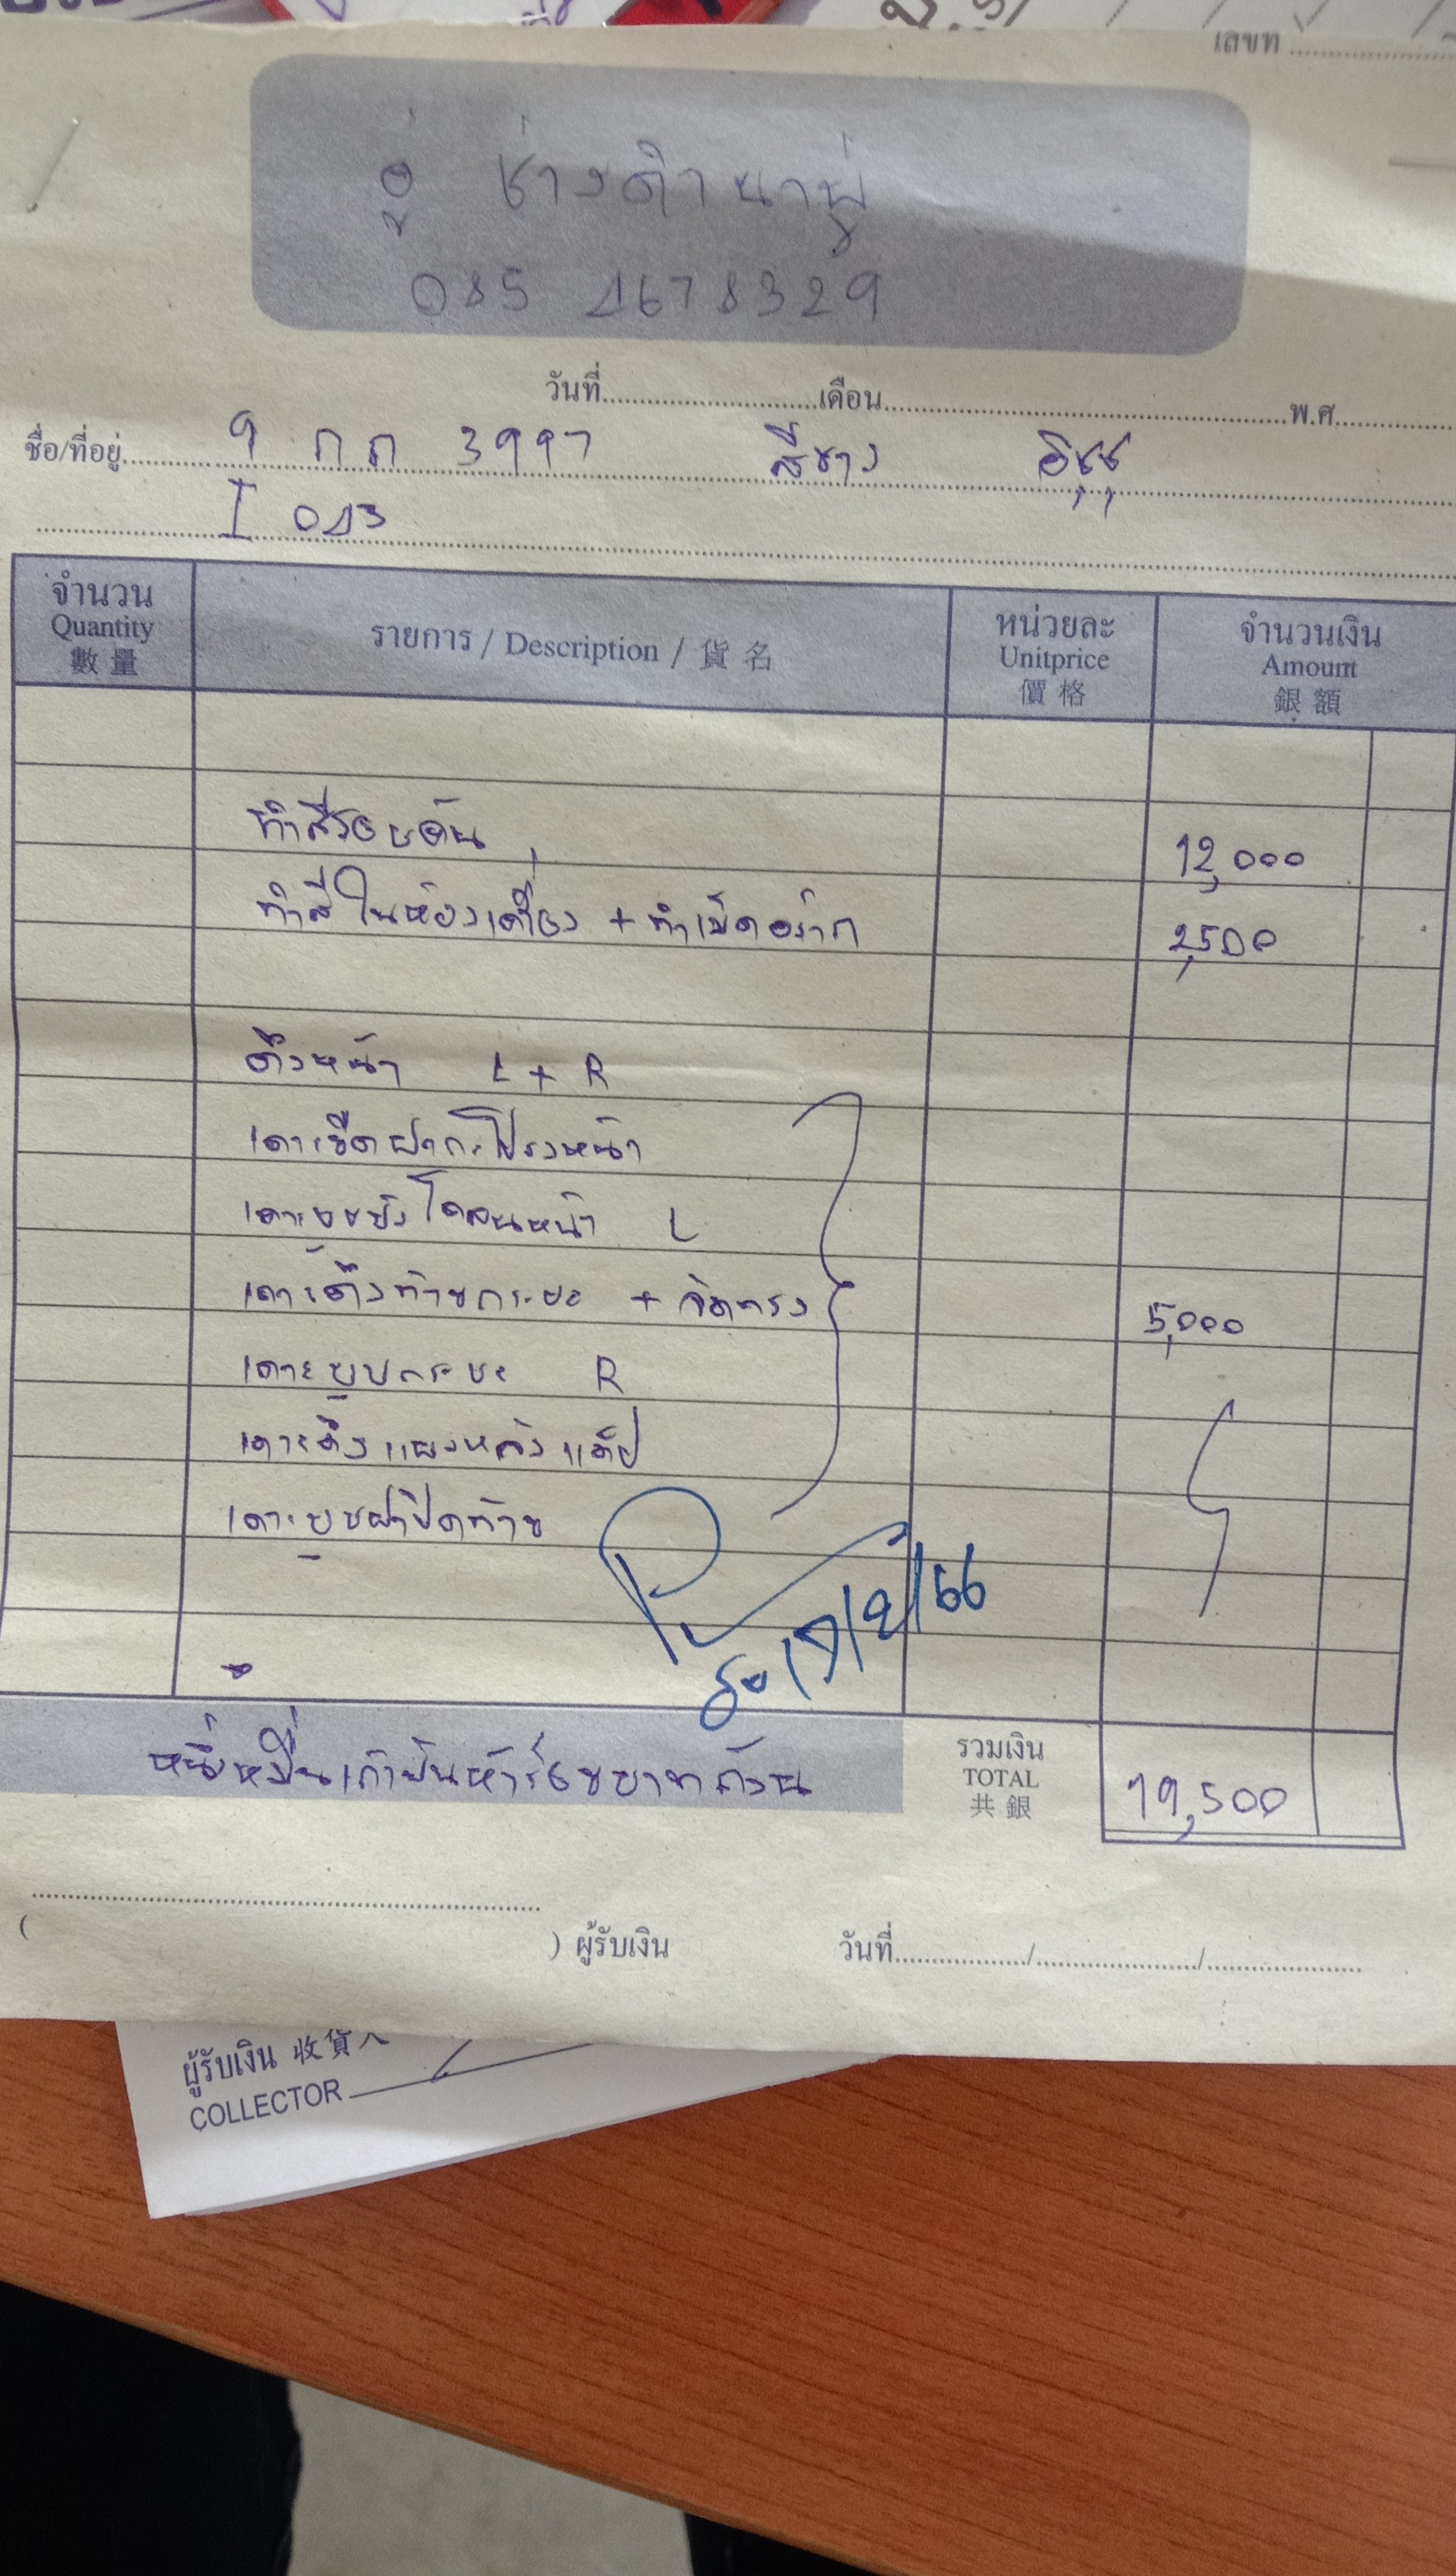 เลขที่
อู่ ช่างดำ นาพู่
085 1678329
วันที่ เดือน พ.ศ.
ชื่อ/ที่อยู่ 9 กฤ 3997 สีขาว อีซูซุ
I 013
จำนวน รายการ / Description / 貨名 หน่วยละ จำนวนเงิน
Quantity Unitprice Amount
數量 價格 銀額
ทำสีรอบคัน 12,000
ทำสีในห้องเครื่อง + ทำเบ็ด 2,500
ดึงหน้า L + R
เคาะยืดฝากะโปรงหน้า
เคาะ โคลนหน้า L
เคาะดึงท้ายกระบะ + จัดทรง 5,000
เคาะบุบกระบะ R
เคาะดึงแผงหลังแค๊ป
เคาะบุบฝาปิดท้าย
17/2/66
หนึ่งหมื่นเก้าพันห้าร้อยบาทถ้วน รวมเงิน
TOTAL 19,500
共銀
( ) ผู้รับเงิน วันที่ / /
ผู้รับเงิน 收貨人
COLLECTOR